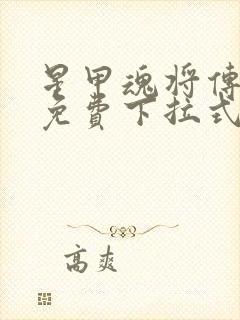 星甲魂将傳
免費下拉式
高爽